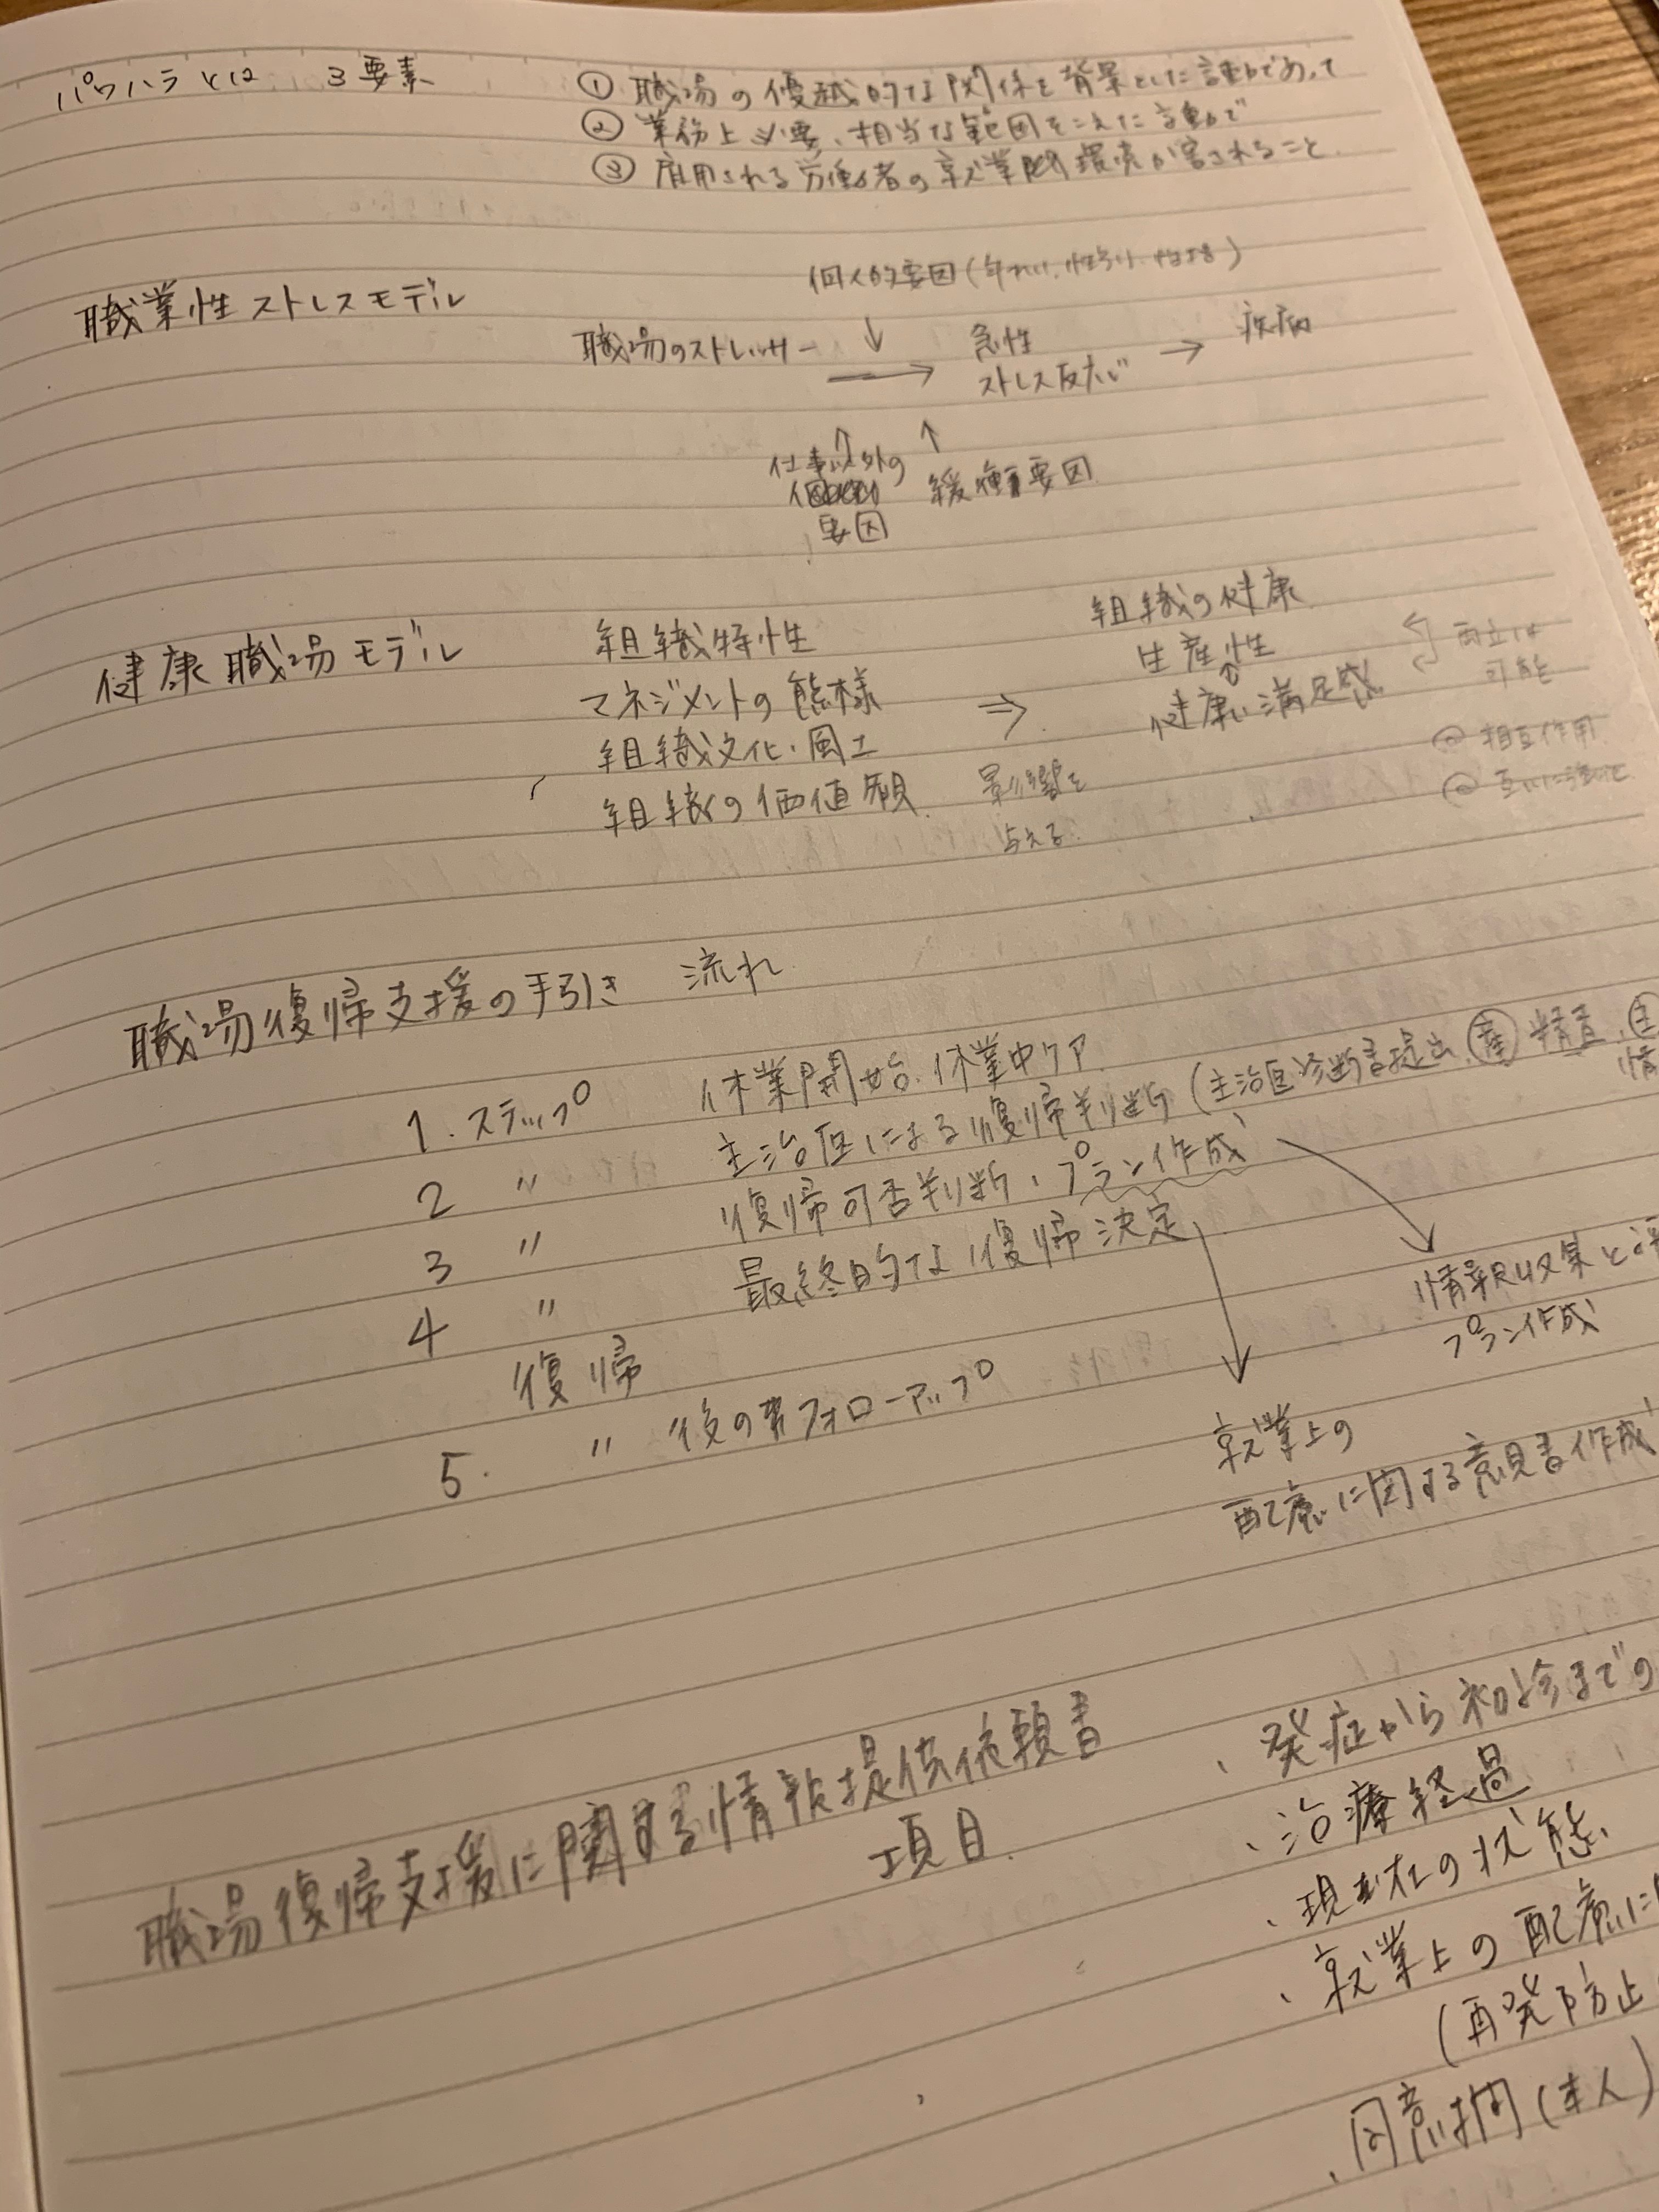 パワハラとは 3要素
① 職場の優越的な関係を背景とした言動であって
② 業務上必要、相当な範囲をこえた言動で
③ 雇用される労働者の就業環境が害されること
職業性ストレスモデル
個人的要因(年れい、性別、性格)
↓
職場のストレッサー → 急性 → 疾病
ストレス反応
↑ ↑
仕事以外の 緩衝要因
要因
健康職場モデル
組織特性
マネジメントの態様
組織文化・風土
組織の価値観
⇒
影響を
与える
組織の健康
生産性
↕
健康、満足感
両立は
可能
相互作用
互いに強化
職場復帰支援の手引き 流れ
1. ステップ 休業開始、休業中ケア
2 〃 主治医による復帰判断(主治医診断書提出、産 精査、主
情
3 〃 復帰可否判断・プラン作成
4 〃 最終的な復帰決定
復帰
5. 〃 後のフォローアップ
情報収集と評
プラン作成
就業上の
配慮に関する意見書作成
職場復帰支援に関する情報提供依頼書
項目
、発症から初診までの
、治療経過
、現在の状態
、就業上の配慮に
(再発防止
、同意欄(本人)